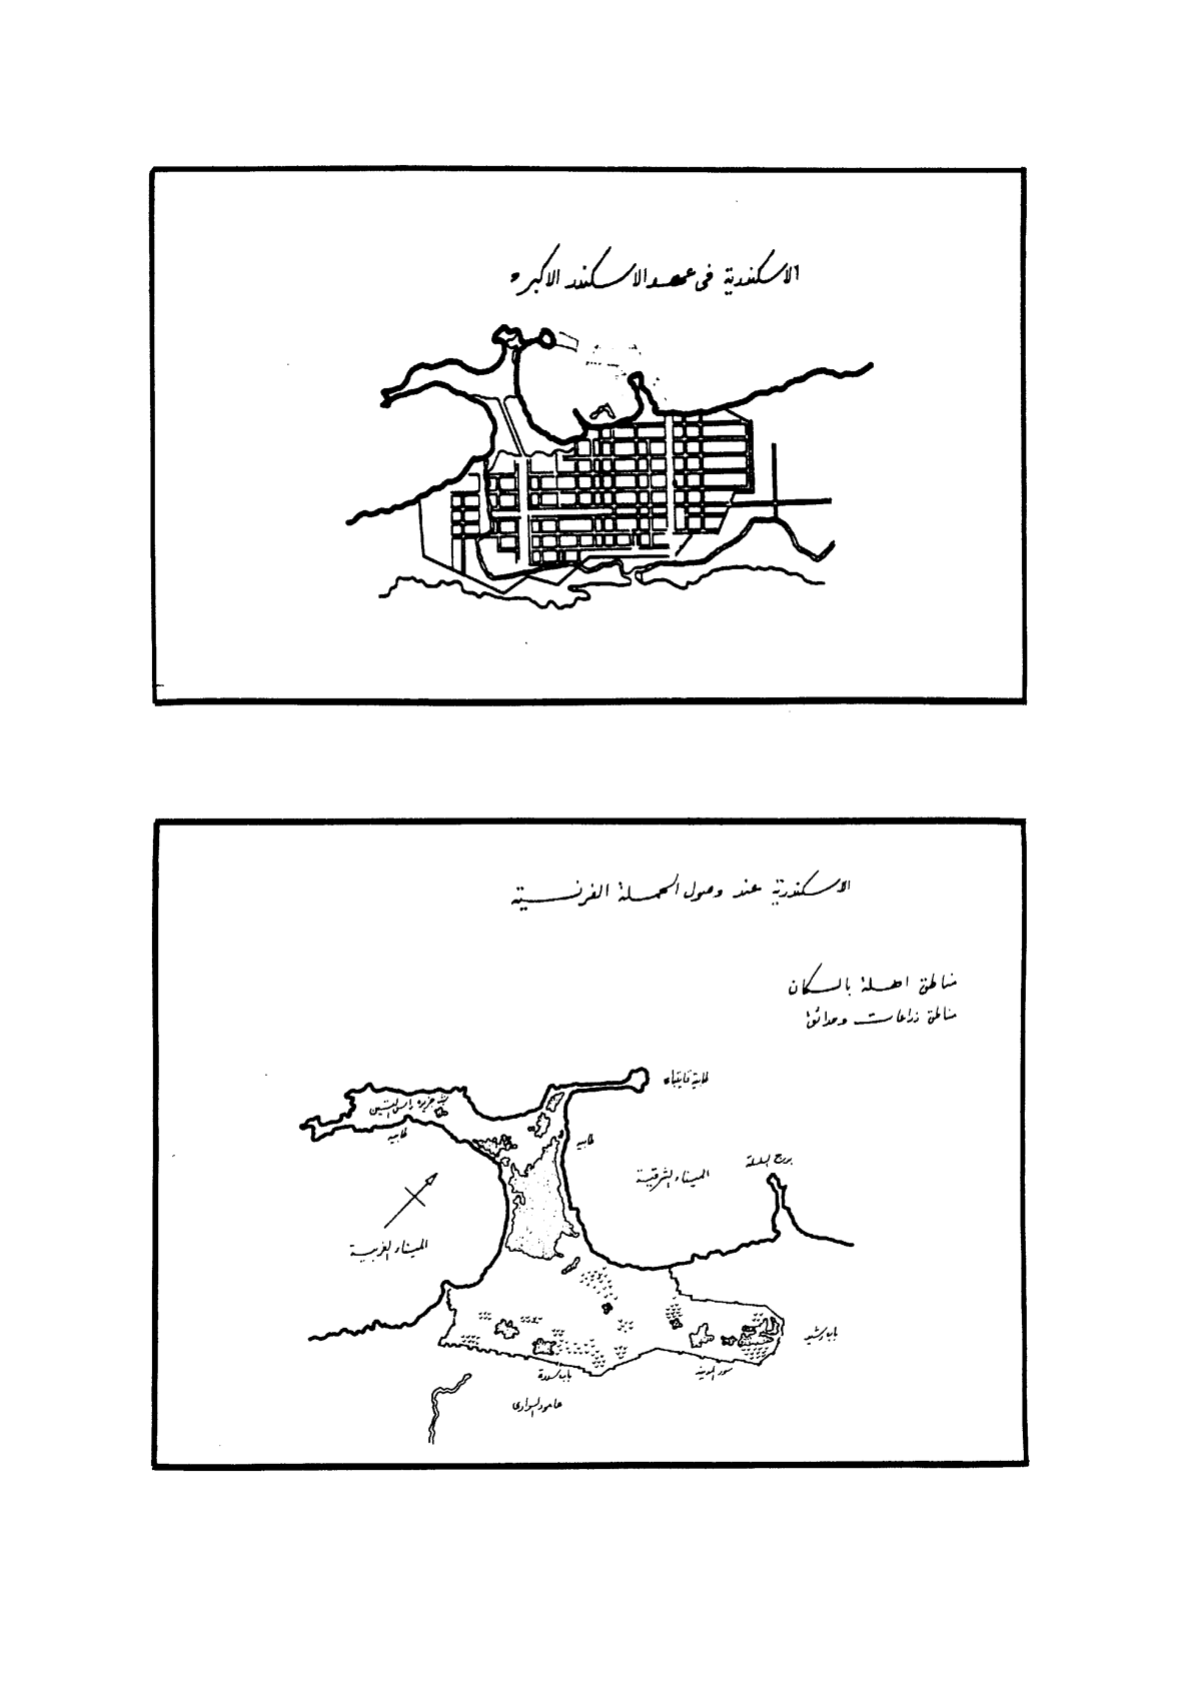 الاسكندرية فى عهد الاسكندر الاكبر
الاسكندرية عند وصول الحملة الفرنسية
مناطق اهلة بالسكان
مناطق زراعات وحدائق
طابية قايتباى
جزيرة راس التين
طابيه
طابيه
برج السلسلة
الميناء الشرقية
الميناء الغربية
باب رشيد
سور المدينة
باب سدرة
عامود السوارى